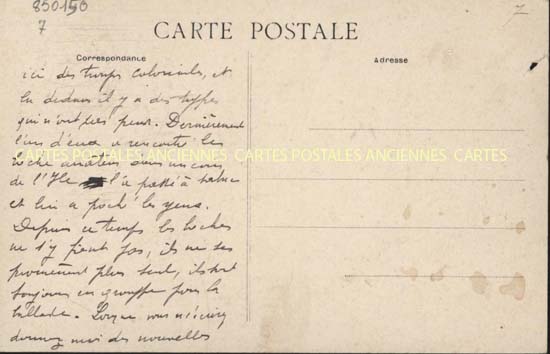 850150
7
7
CARTE POSTALE
Correspondance
Adresse
ici des troups coloniales, et
la dedans il y a des types
qui n'ont pas peur. Dernièrement
l'un d'eux a rencontré les
boche aviateur dans un cours
CARTES POSTALES ANCIENNES CARTES POSTALES ANCIENNES CARTES
de l'Ile l'a passé à tabac
et lui a poché les yeux.
Depuis ce temps les boches
ne s'y fient pas, ils ne se
promènent plus seul, ils sont
toujours en grouppe pour la
ballade. Lorsque vous m'écrirez
donnez moi des nouvelles